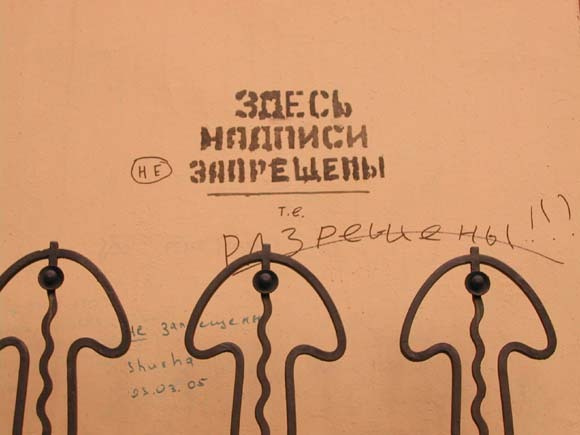 ЗДЕСЬ
НАДПИСИ
НЕ ЗАПРЕЩЕНЫ
т.е.
РАЗРЕШЕНЫ!!!
не запрещены
shucha
03.03.05